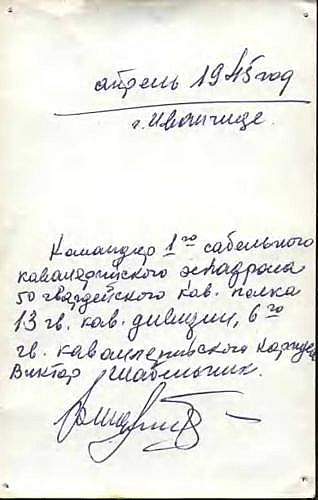 апрель 1945 год
г. Иванчице.
Командир 1го сабельного
кавалерийского эскадрона
50 гвардейского кав. полка
13 гв. кав. дивизии, 6го
гв. кавалерийского корпуса
Виктор Шабельник.